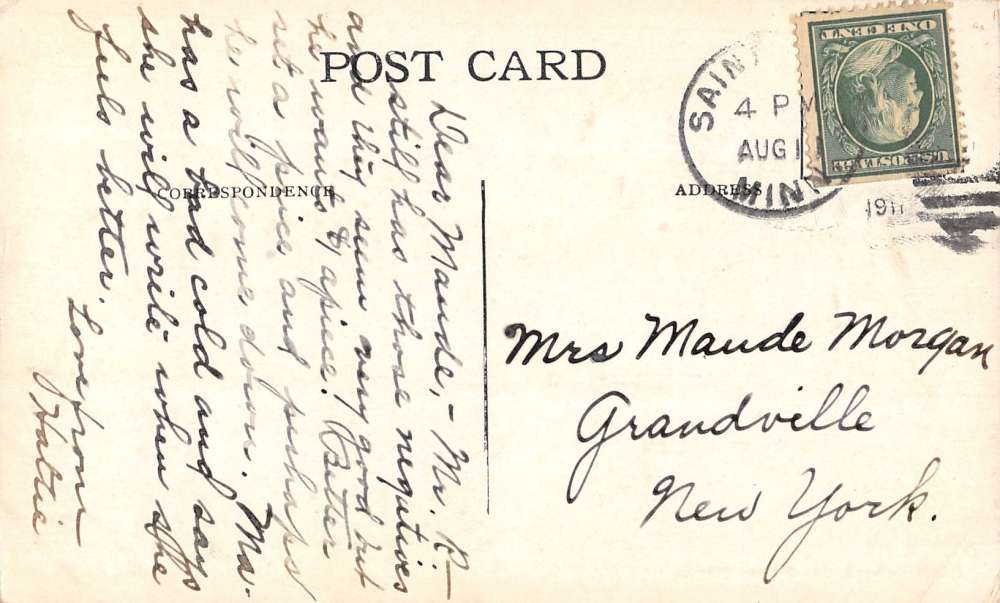 POST CARD
CORRESPONDENCE
ADDRESS
Dear Maude,- Mr. R-
still has those negatives
and they seem very good but
he wants $1 apiece. Better
set a price and perhaps
he will come down. Ma-
has a bad cold and says
she will write when she
feels better.
Love from
Hattie
Mrs Maude Morgan
Grandville
New York.
SAINT
4 PM
AUG 1
MINN
1911
U.S. POSTAGE
ONE CENT